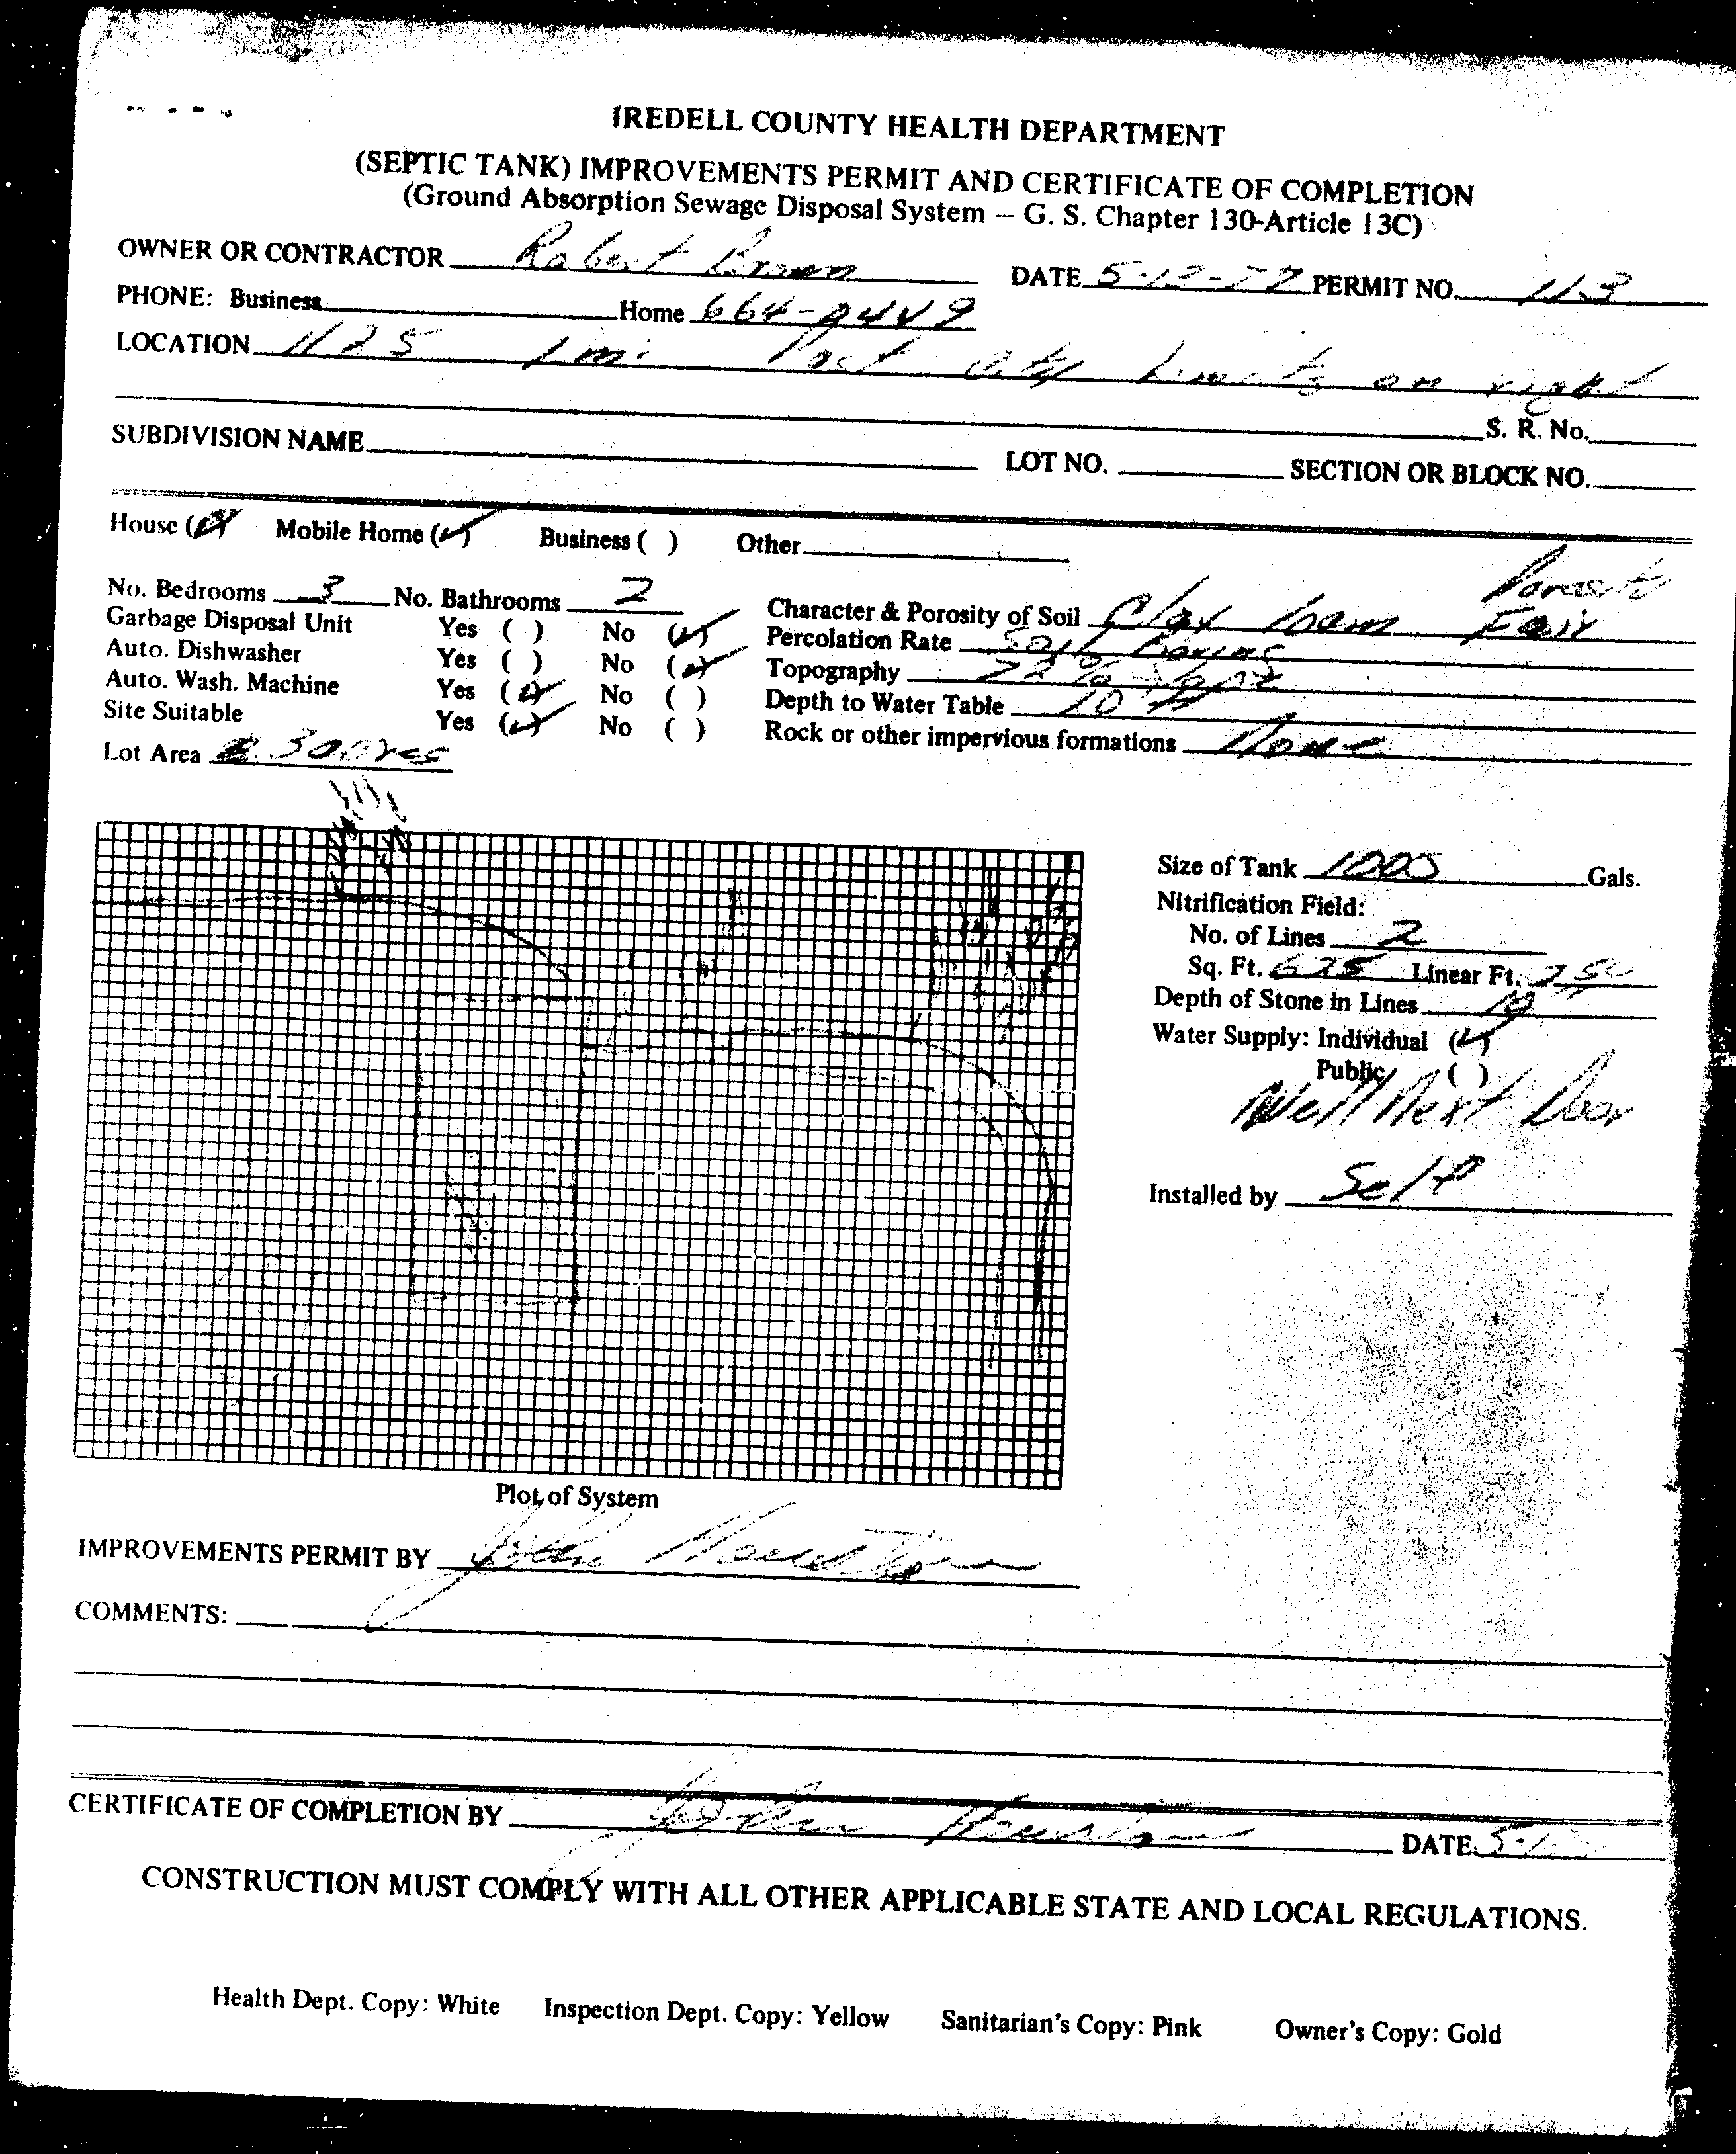 IREDELL COUNTY HEALTH DEPARTMENT
(SEPTIC TANK) IMPROVEMENTS PERMIT AND CERTIFICATE OF COMPLETION
(Ground Absorption Sewage Disposal System — G. S. Chapter 130-Article 13C)
OWNER OR CONTRACTOR Robert Brown DATE 5-12-77 PERMIT NO. 113
PHONE: Business Home 664-
LOCATION 1125 1 mi. Past city limits on right
S. R. No.
SUBDIVISION NAME LOT NO. SECTION OR BLOCK NO.
House ( ) Mobile Home (✓) Business ( ) Other
Porosity
No. Bedrooms 3 No. Bathrooms 2 Character & Porosity of Soil Clay loam Fair
Garbage Disposal Unit Yes ( ) No (✓) Percolation Rate Soil boring
Auto. Dishwasher Yes ( ) No (✓) Topography slope
Auto. Wash. Machine Yes (✓) No ( ) Depth to Water Table 10 ft
Site Suitable Yes (✓) No ( ) Rock or other impervious formations None
Lot Area
Size of Tank 1000 Gals.
Nitrification Field:
No. of Lines 2
Sq. Ft. 675 Linear Ft.
Depth of Stone in Lines
Water Supply: Individual (✓)
Public ( )
Well Next Door
Installed by Self
Plot of System
IMPROVEMENTS PERMIT BY John Houston
COMMENTS:
CERTIFICATE OF COMPLETION BY John Houston DATE 5-1
CONSTRUCTION MUST COMPLY WITH ALL OTHER APPLICABLE STATE AND LOCAL REGULATIONS.
Health Dept. Copy: White Inspection Dept. Copy: Yellow Sanitarian's Copy: Pink Owner's Copy: Gold